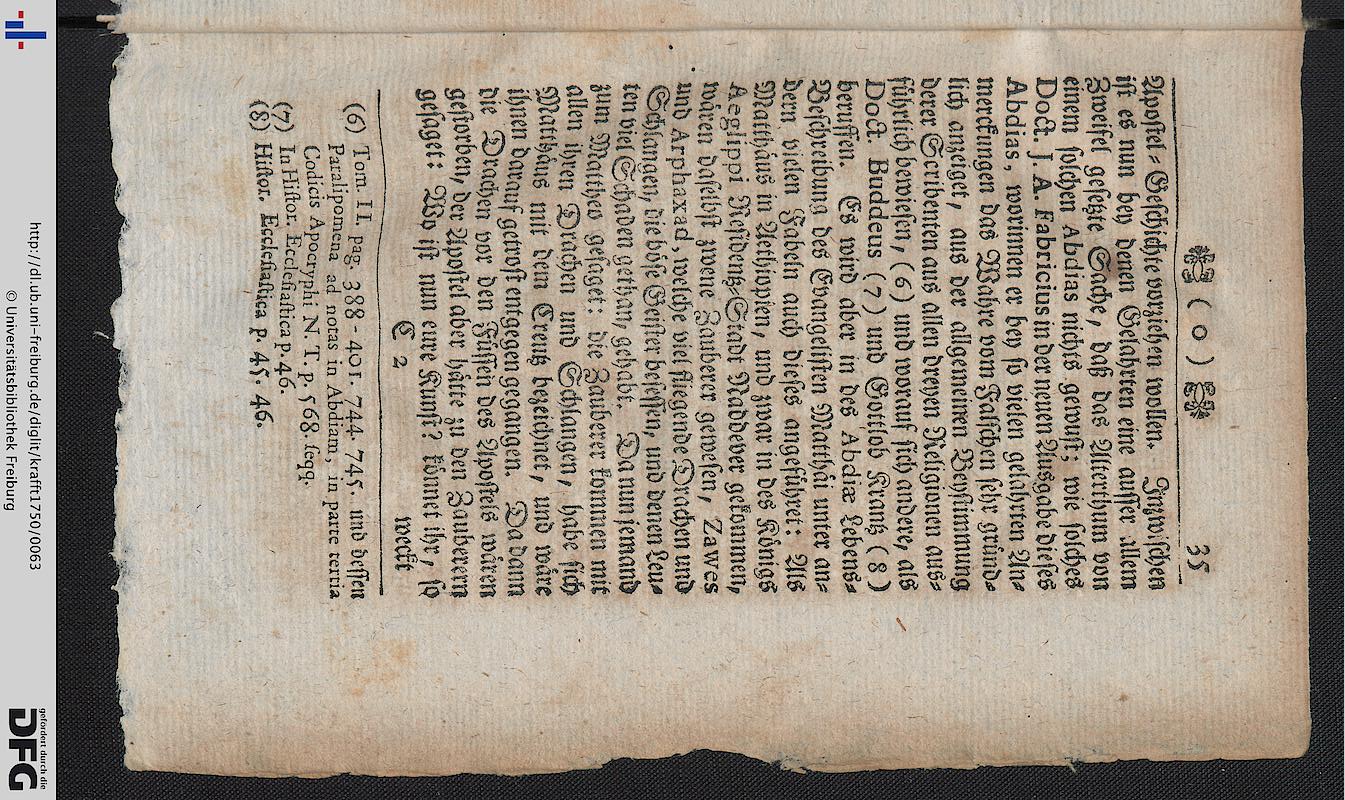 ( 0 ) 35
Apostel-Geschichte vorziehen wollen. Inzwischen
ist es nun bey denen Gelahrten eine ausser allem
Zweifel gesetzte Sache, daß das Alterthum von
einem solchen Abdias nichts gewust; wie solches
Doct. J A. Fabricius in der neuen Ausgabe dieses
Abdias, worinnen er bey so vielen gelahrten An-
merckungen das Wahre vom Falschen sehr gründ-
lich anzeiget, aus der allgemeinen Beystimmung
derer Scribenten aus allen dreyen Religionen aus-
führlich bewiesen, (6) und worauf sich andere, als
Doct. Buddeus (7) und Gottlob Krantz (8)
beruffen. Es wird aber in des Abdiæ Lebens-
Beschreibung des Evangelisten Matthäi unter an-
dern vielen Fabeln auch dieses angeführet: Als
Matthäus in Aethiopien, und zwar in des Königs
Aeglippi Residentz-Stadt Naddever gekommen,
wären daselbst zwene Zauberer gewesen, Zawes
und Arphaxad, welche viel fliegende Drachen und
Schlangen, die böse Geister besessen, und denen Leu-
ten viel Schaden gethan, gehabt. Da nun jemand
zum Mattheo gesaget: die Zauberer kommen mit
allen ihren Drachen und Schlangen, habe sich
Matthäus mit dem Creutz bezeichnet, und wäre
ihnen darauf getrost entgegen gegangen. Da dann
die Drachen vor den Füssen des Apostels wären
gestorben, der Apostel aber hätte zu den Zauberern
gesaget: Wo ist nun eure Kunst? könnet ihr, so
C 2 weckt
(6) Tom. II. pag. 388-401. 744. 745. und dessen
Paralipomena ad notas in Abdiam, in parte tertia
Codicis Apocryphi N. T. p. 568. seqq.
(7) In Histor. Ecclesiastica p. 46.
(8) Histor. Ecclesiastica p. 45. 46.
http://dl.ub.uni-freiburg.de/diglit/krafft1750/0063
© Universitätsbibliothek Freiburg
gefördert durch die
DFG